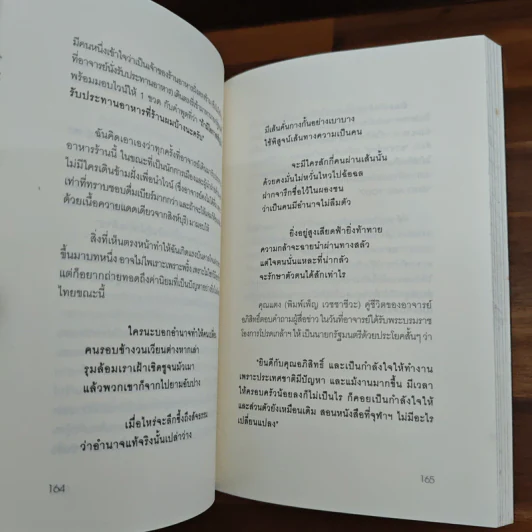 มีคนหนึ่งเข้าใจว่าเป็นเจ้าของร้านอาหาร
ที่อาจารย์นั่งรับประทานอาหาร เดินตรงเข้า
พร้อมมอบไวน์ให้ 1 ขวด กับคำพูดที่ว่า
รับประทานอาหารที่ร้านผมบ้างนะครับ"
ฉันคิดเอาเองว่าทุกครั้งที่อาจารย์
อาหารร้านนี้ ในขณะที่เป็นนักการเมือง
ไม่มีใครเดินข้ามฝั่งเพื่อนำไวน์
เท่าที่ทราบชอบดื่มเบียร์มากกว่า
ด้วยเนื้อควายแดดเดียวจากสิงห์บุรี
สิ่งที่เห็นตรงหน้าทำให้ฉันเกิดแรง
ขึ้นมาบทหนึ่ง อาจไม่ไพเราะเพราะพริ้ง
แต่ก็อยากถ่ายทอดถึงค่านิยมที่เป็นปัญหา
ไทยขณะนี้
ใครนะบอกอำนาจทำให้คน
คนรอบข้างวนเวียนต่างหากเล่า
รุมล้อมเราเฝ้าเชิดชูจนมัวเมา
แล้วพวกเขาก็จากไปยามอับปาง
เมื่อไหร่จะลึกซึ้งถึงสัจธรรม
ว่าอำนาจแท้จริงนั้นเปล่าว่าง
164
มีเส้นคั่นกางกั้นอย่างเบาบาง
ใช้พิสูจน์เส้นทางความเป็นคน
จะมีใครสักกี่คนผ่านเส้นนั้น
ด้วยคงมั่นไม่หวั่นไหวไปฉ้อฉล
ฝากจารึกชื่อไว้ในผองชน
ว่าเป็นคนมีอำนาจไม่ลืมตัว
ยิ่งอยู่สูงเสียดฟ้ายิ่งท้าทาย
ความกล้าจะฉายนำผ่านทางสลัว
แต่ใจตนนั่นแหละที่น่ากลัว
จะรักษาตัวตนได้สักเท่าไร
คุณแตง (พิมพ์เพ็ญ เวชชาชีวะ) คู่ชีวิตของอาจารย์
อภิสิทธิ์ตอบคำถามผู้สื่อข่าว ในวันที่อาจารย์ได้รับพระบรมราช
โองการโปรดเกล้าฯ ให้เป็นนายกรัฐมนตรีด้วยประโยคสั้นๆ ว่า
"ยินดีกับคุณอภิสิทธิ์ และเป็นกำลังใจให้ทำงาน
เพราะประเทศชาติมีปัญหา และแม้งานมากขึ้น มีเวลา
ให้ครอบครัวน้อยลงก็ไม่เป็นไร ก็คอยเป็นกำลังใจให้
และส่วนตัวยังเหมือนเดิม สอนหนังสือที่จุฬาฯ ไม่มีอะไร
เปลี่ยนแปลง"
165